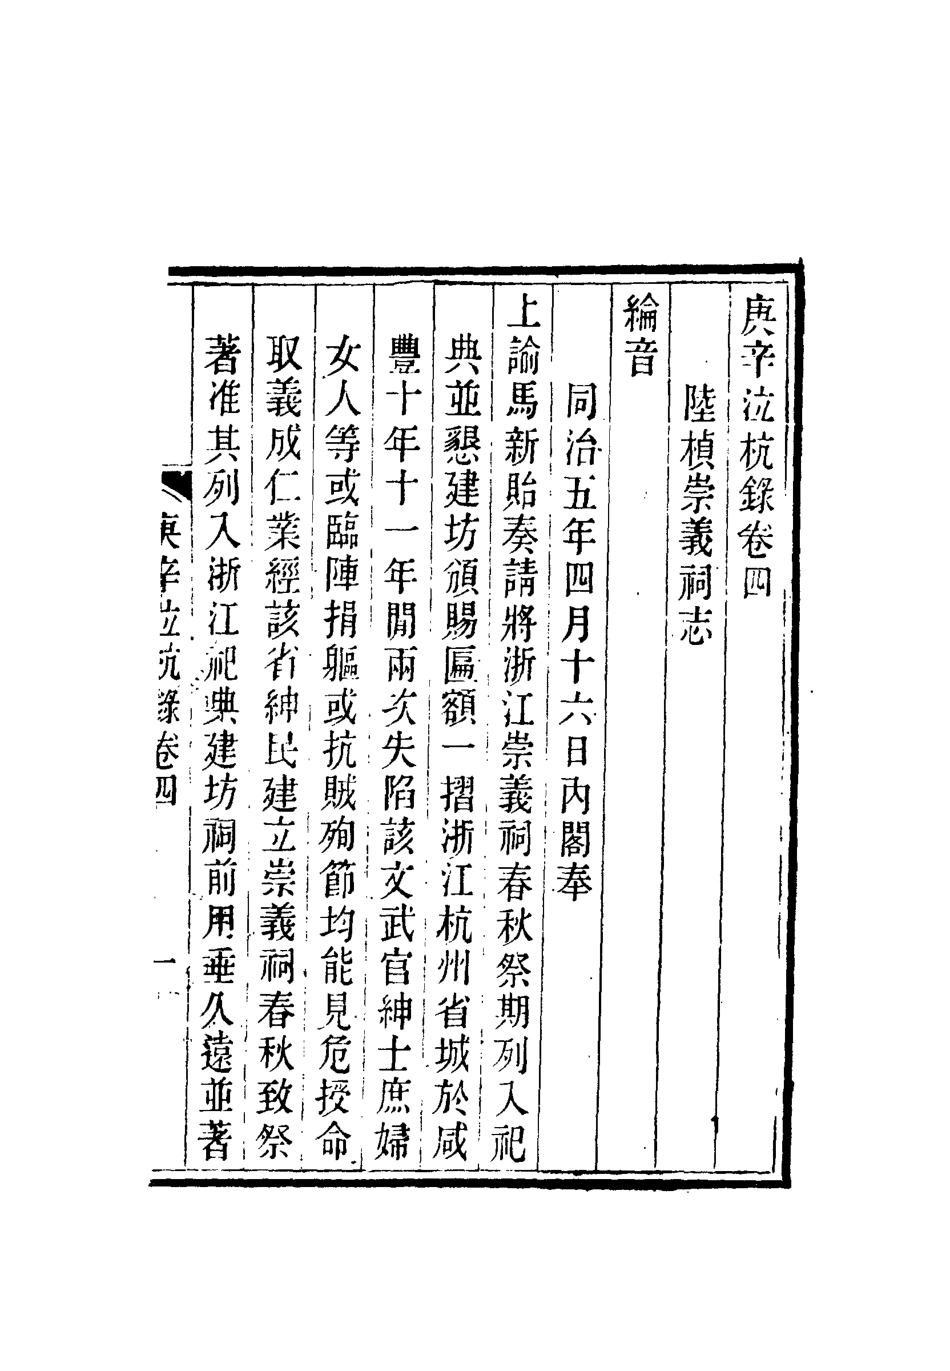 庚辛泣杭錄卷四
陸楨崇義祠志
綸音
同治五年四月十六日內閣奉
上諭馬新貽奏請將浙江崇義祠春秋祭期列入祀
典並懇建坊頒賜匾額一摺浙江杭州省城於咸
豐十年十一年閒兩次失陷該文武官紳士庶婦
女人等或臨陣捐軀或抗賊殉節均能見危授命
取義成仁業經該省紳民建立崇義祠春秋致祭
著准其列入浙江祀典建坊祠前用垂久遠並著
庚辛泣杭錄卷四
一